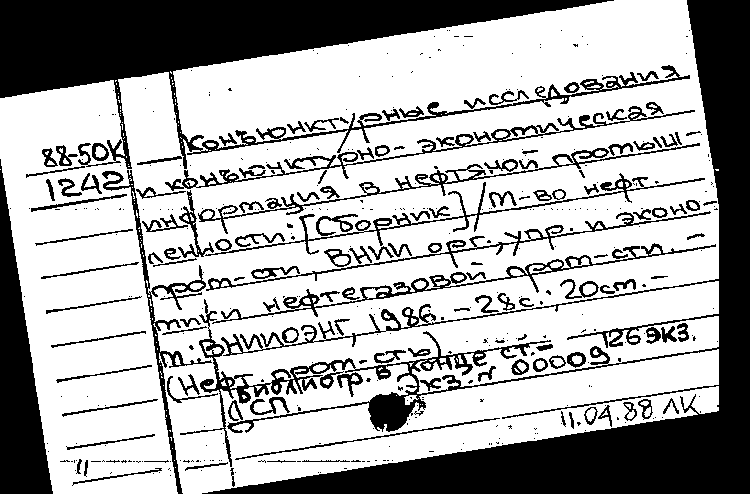 88-50К
1242
Конъюнктурные исследования
и конъюнктурно-экономическая
информация в нефтяной промыш-
ленности: [Сборник] / М-во нефт.
пром-сти, ВНИИ орг., упр. и эконо-
мики нефтегазовой пром-сти. -
М.: ВНИИОЭНГ, 1986. - 28с.; 20см. -
(Нефт. пром-сть)
Библиогр. в конце ст. - 126экз.
Экз. N 00009.
ДСП.
11.04.88 ЛК
11